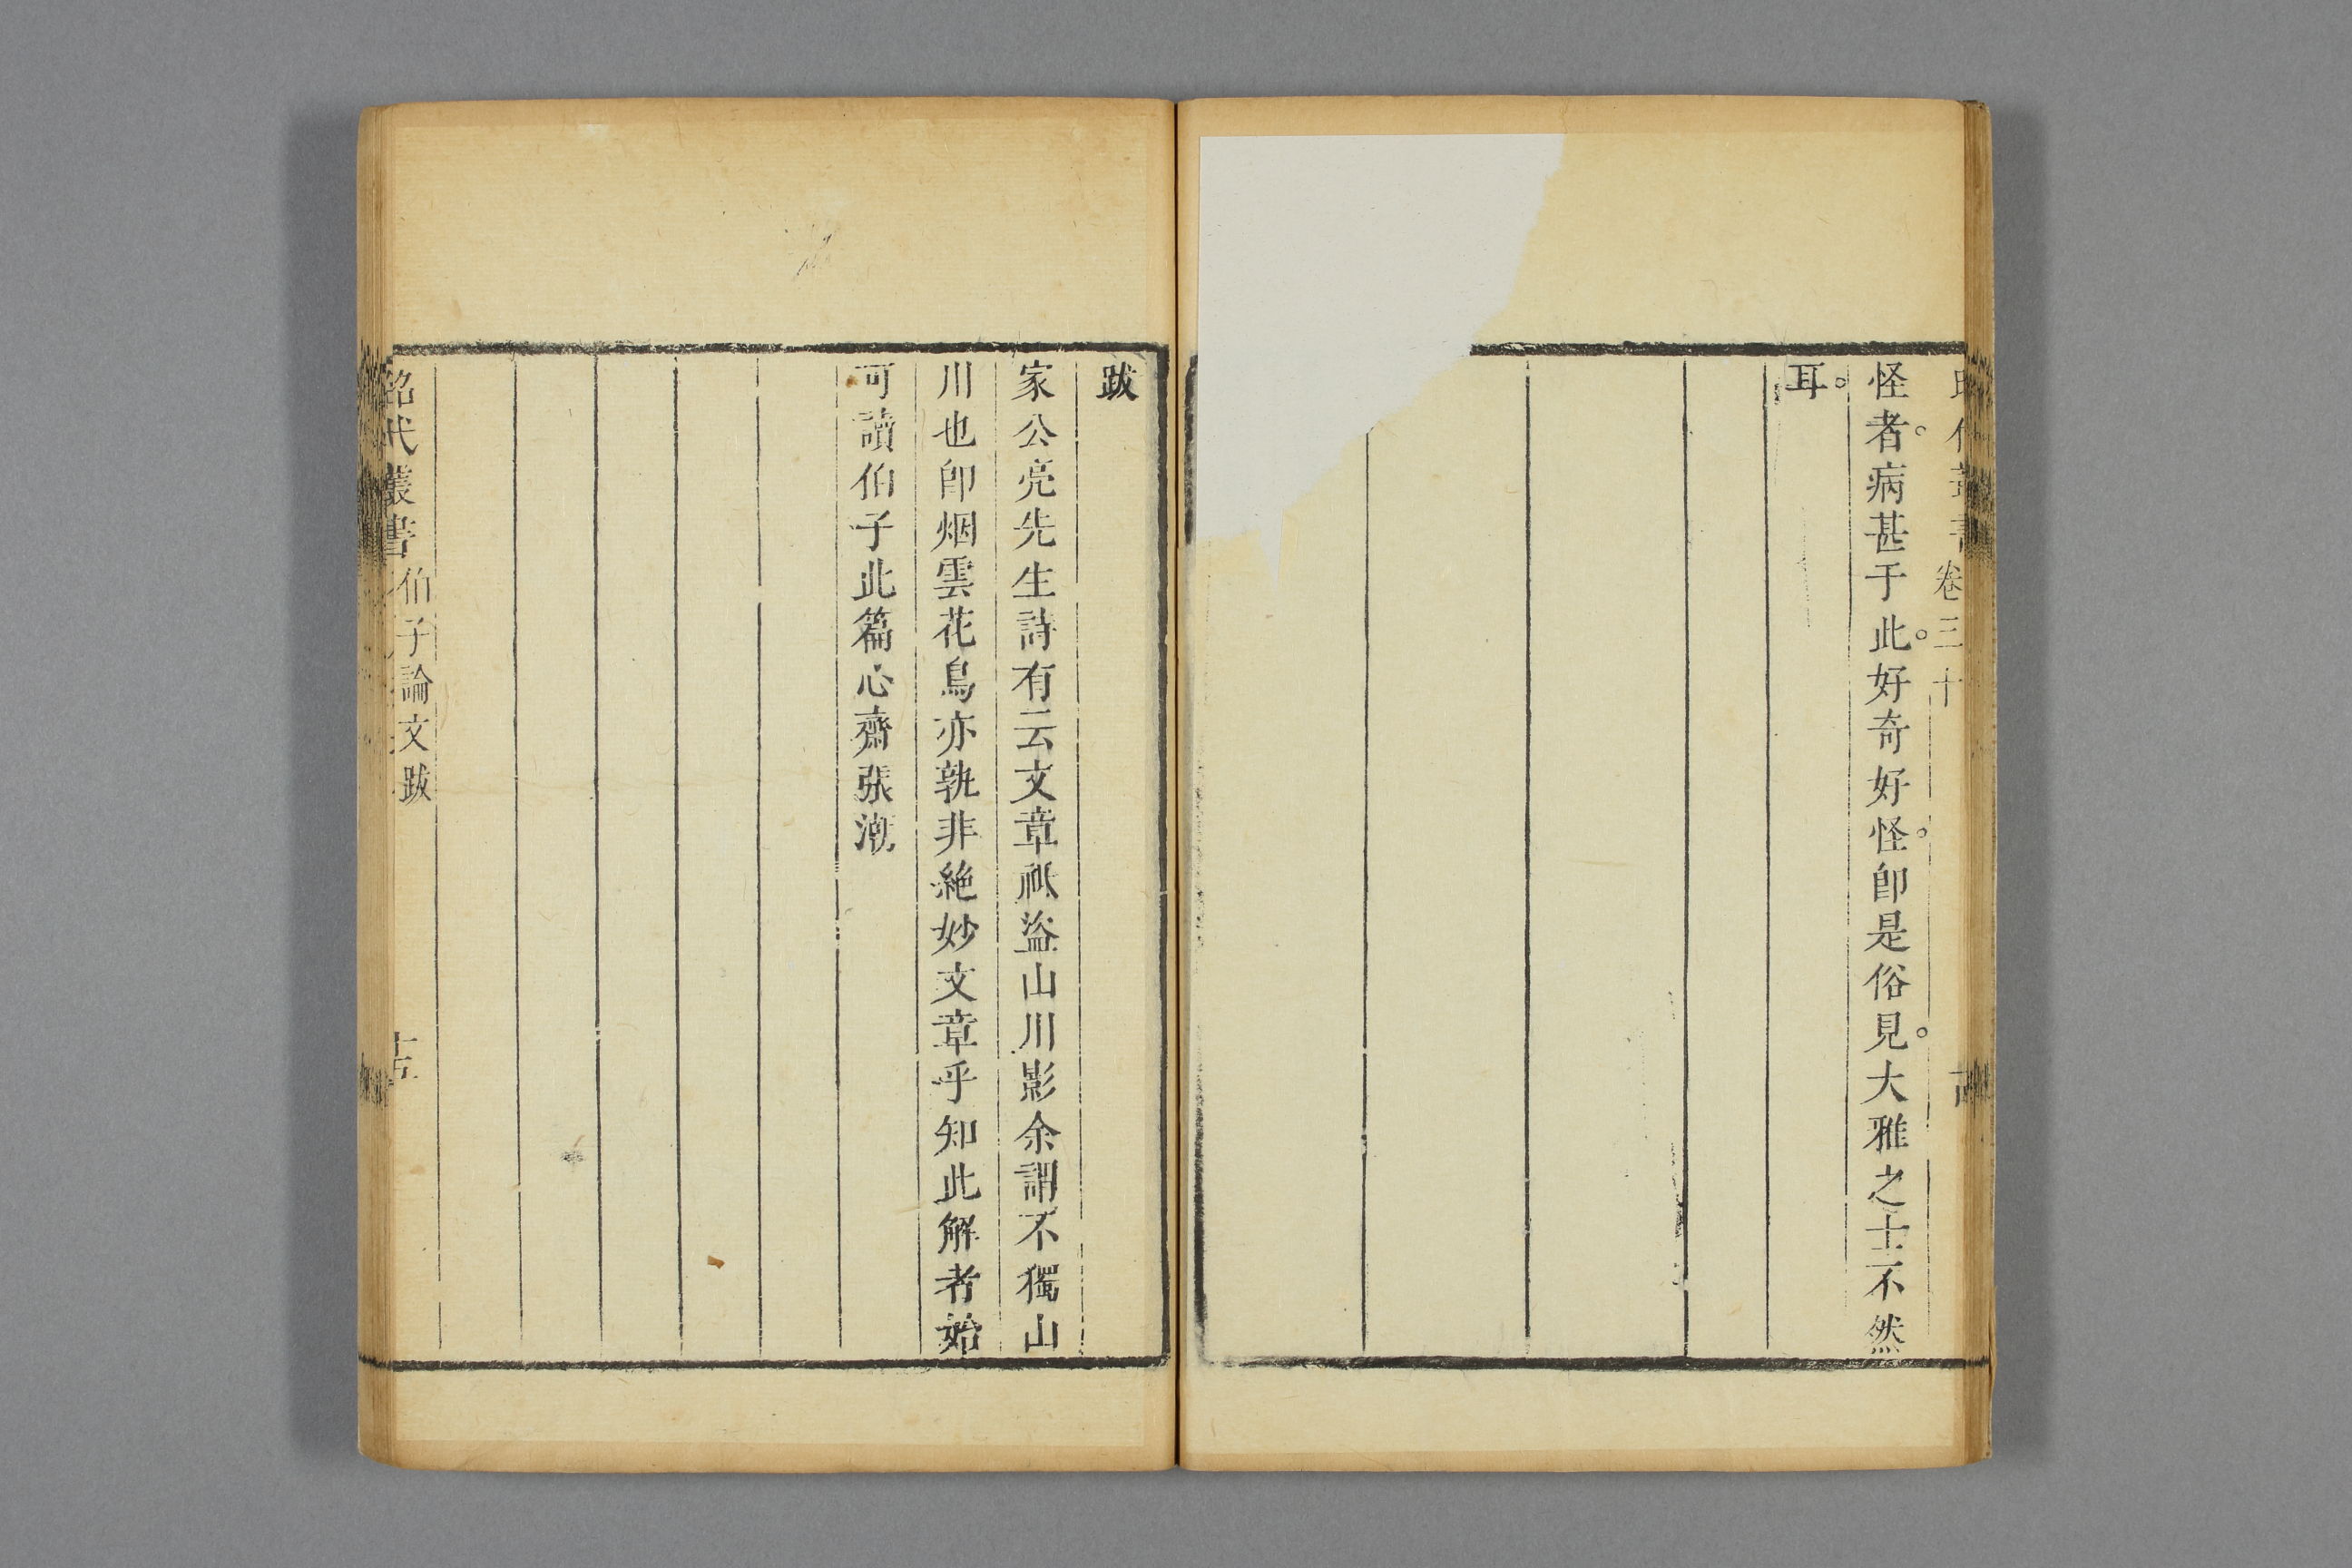 卷三十
怪者。病甚于此。好奇好怪。卽是俗見。大雅之士不然
耳。
跋
家公亮先生詩有云文章祗盜山川影余謂不獨山
川也卽烟雲花鳥亦孰非絶妙文章乎知此解者始
可讀伯子此篇心齋張潮
昭代叢書 伯子論文 跋 十五